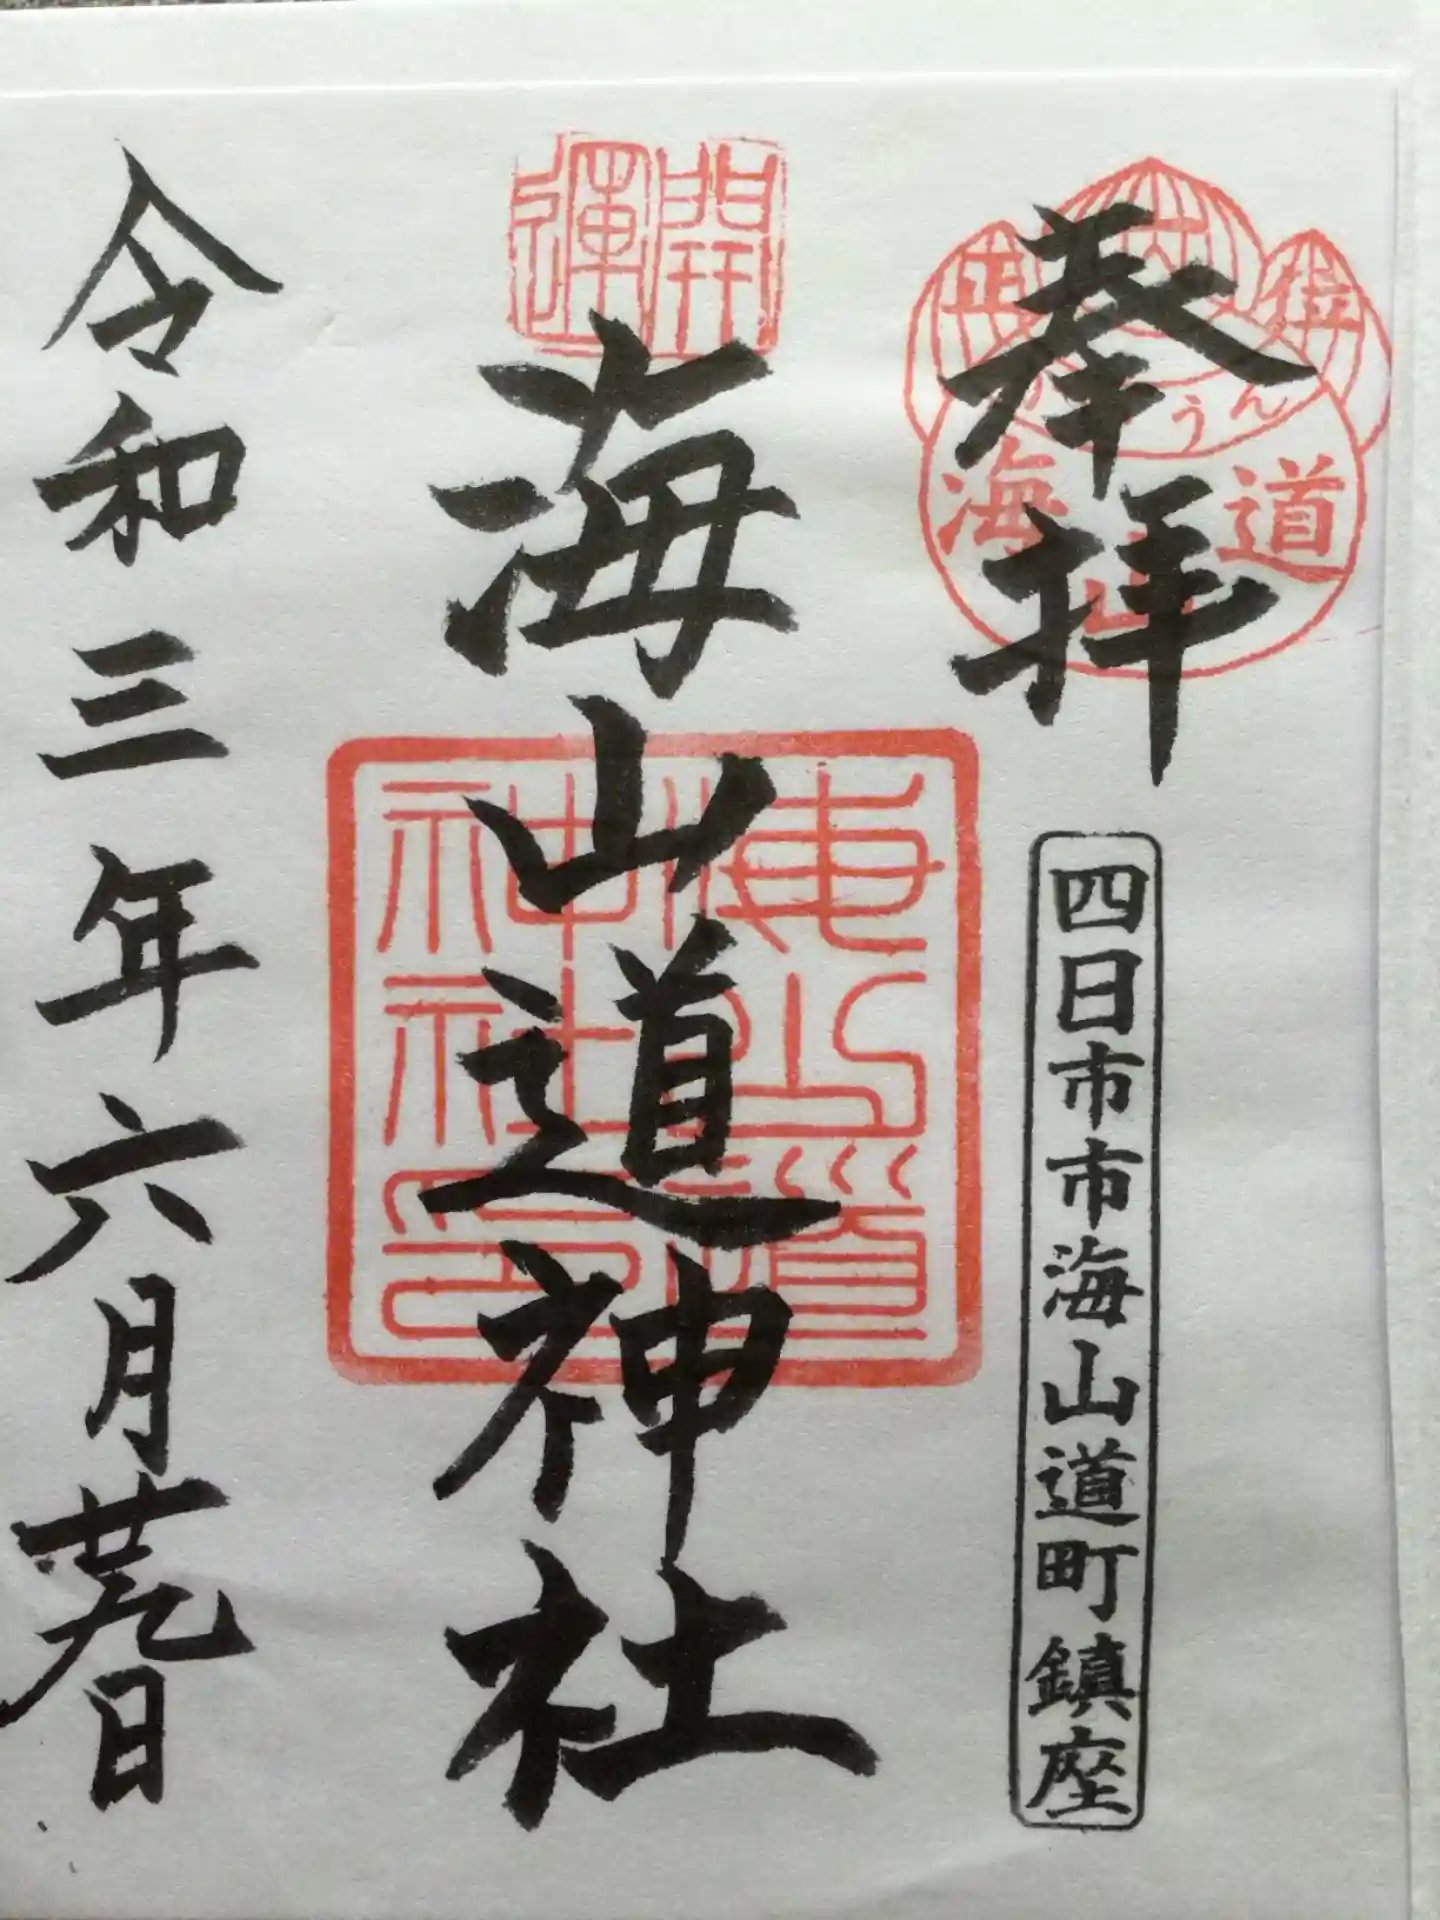 奉拝
正 大 位
うん
海山道
四日市市海山道町鎮座
開運
海山道神社
海山道
神社印
令和三年六月廿九日